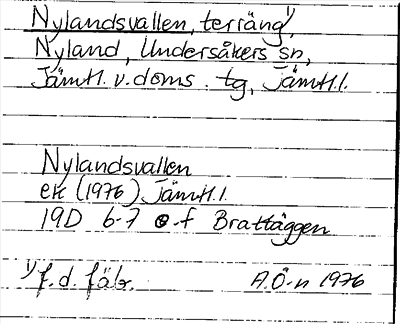 Nylandsvallen, terräng¹⁾,
Nyland, Undersåkers sn,
Jämtl. v. doms. tg, Jämtl.l.
Nylandsvallen
ek (1976) Jämtl.l.
19D 6-7 e-f Brattäggen
¹⁾ f.d. fäb. A.Ö-n 1976